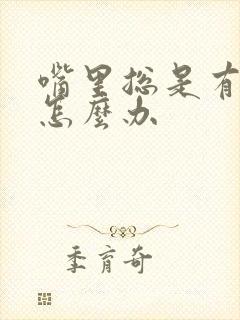 嘴里总是有
怎麼办
季育奇